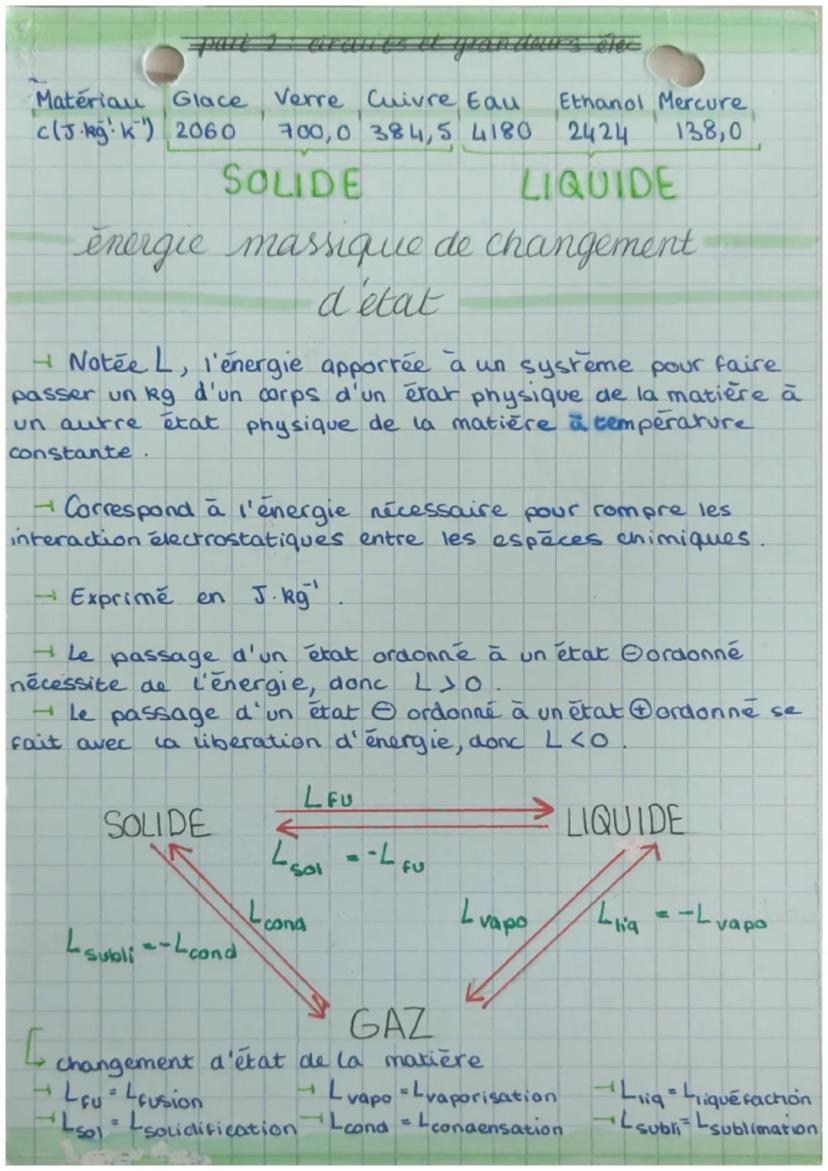 part 2 : circuits et grandeurs élec
Matériau Glace Verre Cuivre Eau Ethanol Mercure
c(J·kg⁻¹·K⁻¹) 2060 700,0 384,5 4180 2424 138,0
SOLIDE LIQUIDE
énergie massique de changement
d'état
→ Notée L, l'énergie apportée à un système pour faire
passer un kg d'un corps d'un état physique de la matière à
un autre état physique de la matière à température
constante.
→ Correspond à l'énergie nécessaire pour rompre les
interaction électrostatiques entre les espèces chimiques.
→ Exprimé en J·kg⁻¹.
→ Le passage d'un état ordonné à un état ⊖ ordonné
nécessite de l'énergie, donc L > 0.
→ Le passage d'un état ⊖ ordonné à un état ⊕ ordonné se
fait avec la libération d'énergie, donc L < 0.
L FU
SOLIDE LIQUIDE
L sol = -L FU
L cond L vapo L liq = -L vapo
L subli = -L cond
GAZ
changement d'état de la matière
→ L FU = L fusion → L vapo = L vaporisation → L liq = L liquéfaction
→ L sol = L solidification → L cond = L condensation → L subli = L sublimation